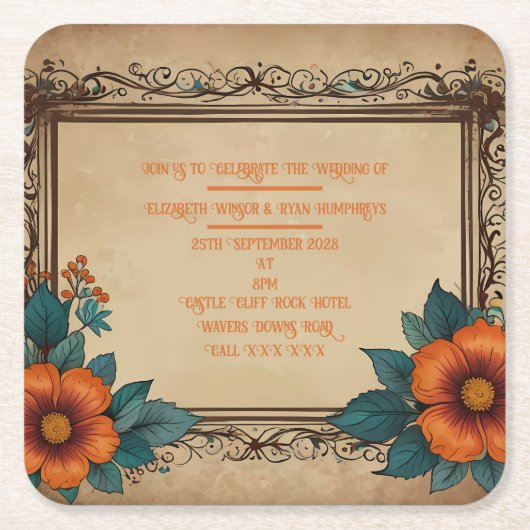 Join Us to Celebrate the Wedding of
Elizabeth Winsor & Ryan Humphreys
25th September 2028
at
8pm
Castle Cliff Rock Hotel
Wavers Downs Road
Call XXX XXX